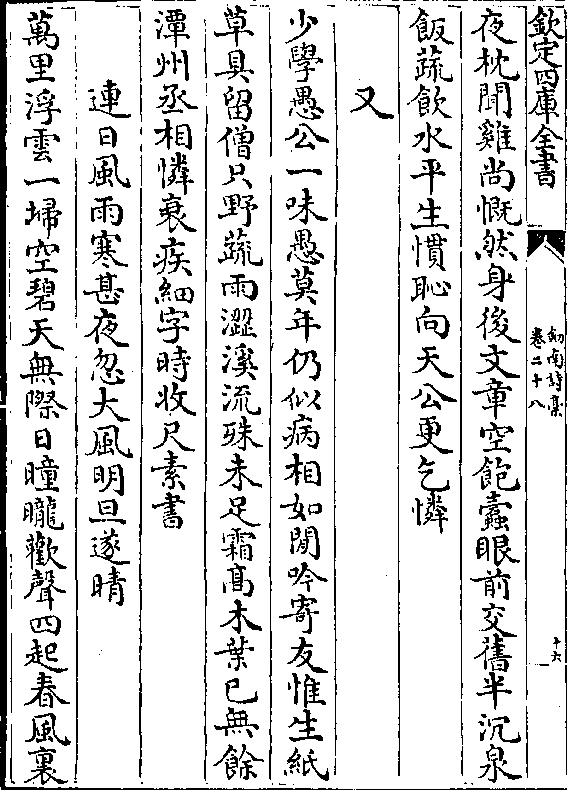 欽定四庫全書
劒南詩集
卷二十八
十六
夜枕聞雞尚慨然身後文章空飽蠧眼前交舊半沉泉
飯蔬飲水平生慣恥向天公更乞憐
又
少學愚公一味愚莫年仍似病相如閒吟寄友惟生紙
草具留僧只野蔬雨澀溪流殊未足霜髙木葉已無餘
潭州丞相憐衰疾細字時收尺素書
連日風雨寒甚夜忽大風明旦遂晴
萬里浮雲一埽空碧天無際日曈曨歡聲四起春風裏